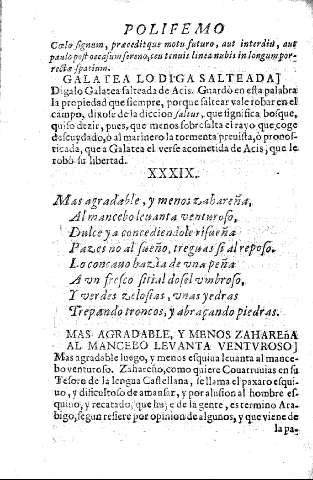 POLIFEMO
Cœlo signum, præceditque motu futuro, aut interdiu, aut
paulo post occasum sereno, seu tenuis linea nubis in longum por-
rectæ spatium.
GALATEA LO DIGA SALTEADA]
Digalo Galatea salteada de Acis. Guardò en esta palabra
la propiedad que siempre, porque saltear vale robar en el
campo, dixose de la diccion saltus, que significa bosque,
quiso dezir, pues, que menos sobresalta el rayo que coge
descuydado, ò al marinero la tormenta preuista, ò pronos-
ticada, que a Galatea el verse acometida de Acis, que le
robò su libertad.
XXXIX.
Mas agradable, y menos zahareña,
Al mancebo leuanta venturoso,
Dulce ya concediendole risueña
Pazes no al sueño, treguas si al reposo.
Lo concauo hazia de vna peña
A vn fresco sitial dosel vmbroso,
Y verdes zelosias, vnas yedras
Trepando troncos, y abraçando piedras.
MAS AGRADABLE, Y MENOS ZAHAREñA
AL MANCEBO LEVANTA VENTVROSO]
Mas agradable luego, y menos esquiua leuanta al mance-
bo venturoso. Zahareño, como quiere Couarruuias en su
Tesoro de la lengua Castellana, se llama el paxaro esqui-
uo, y dificultoso de amansar, y por alusion al hombre es-
quiuo, y recatado, que huye de la gente, es termino Ara-
bigo, segun refiere por opinion de algunos, y que viene de
la pa-